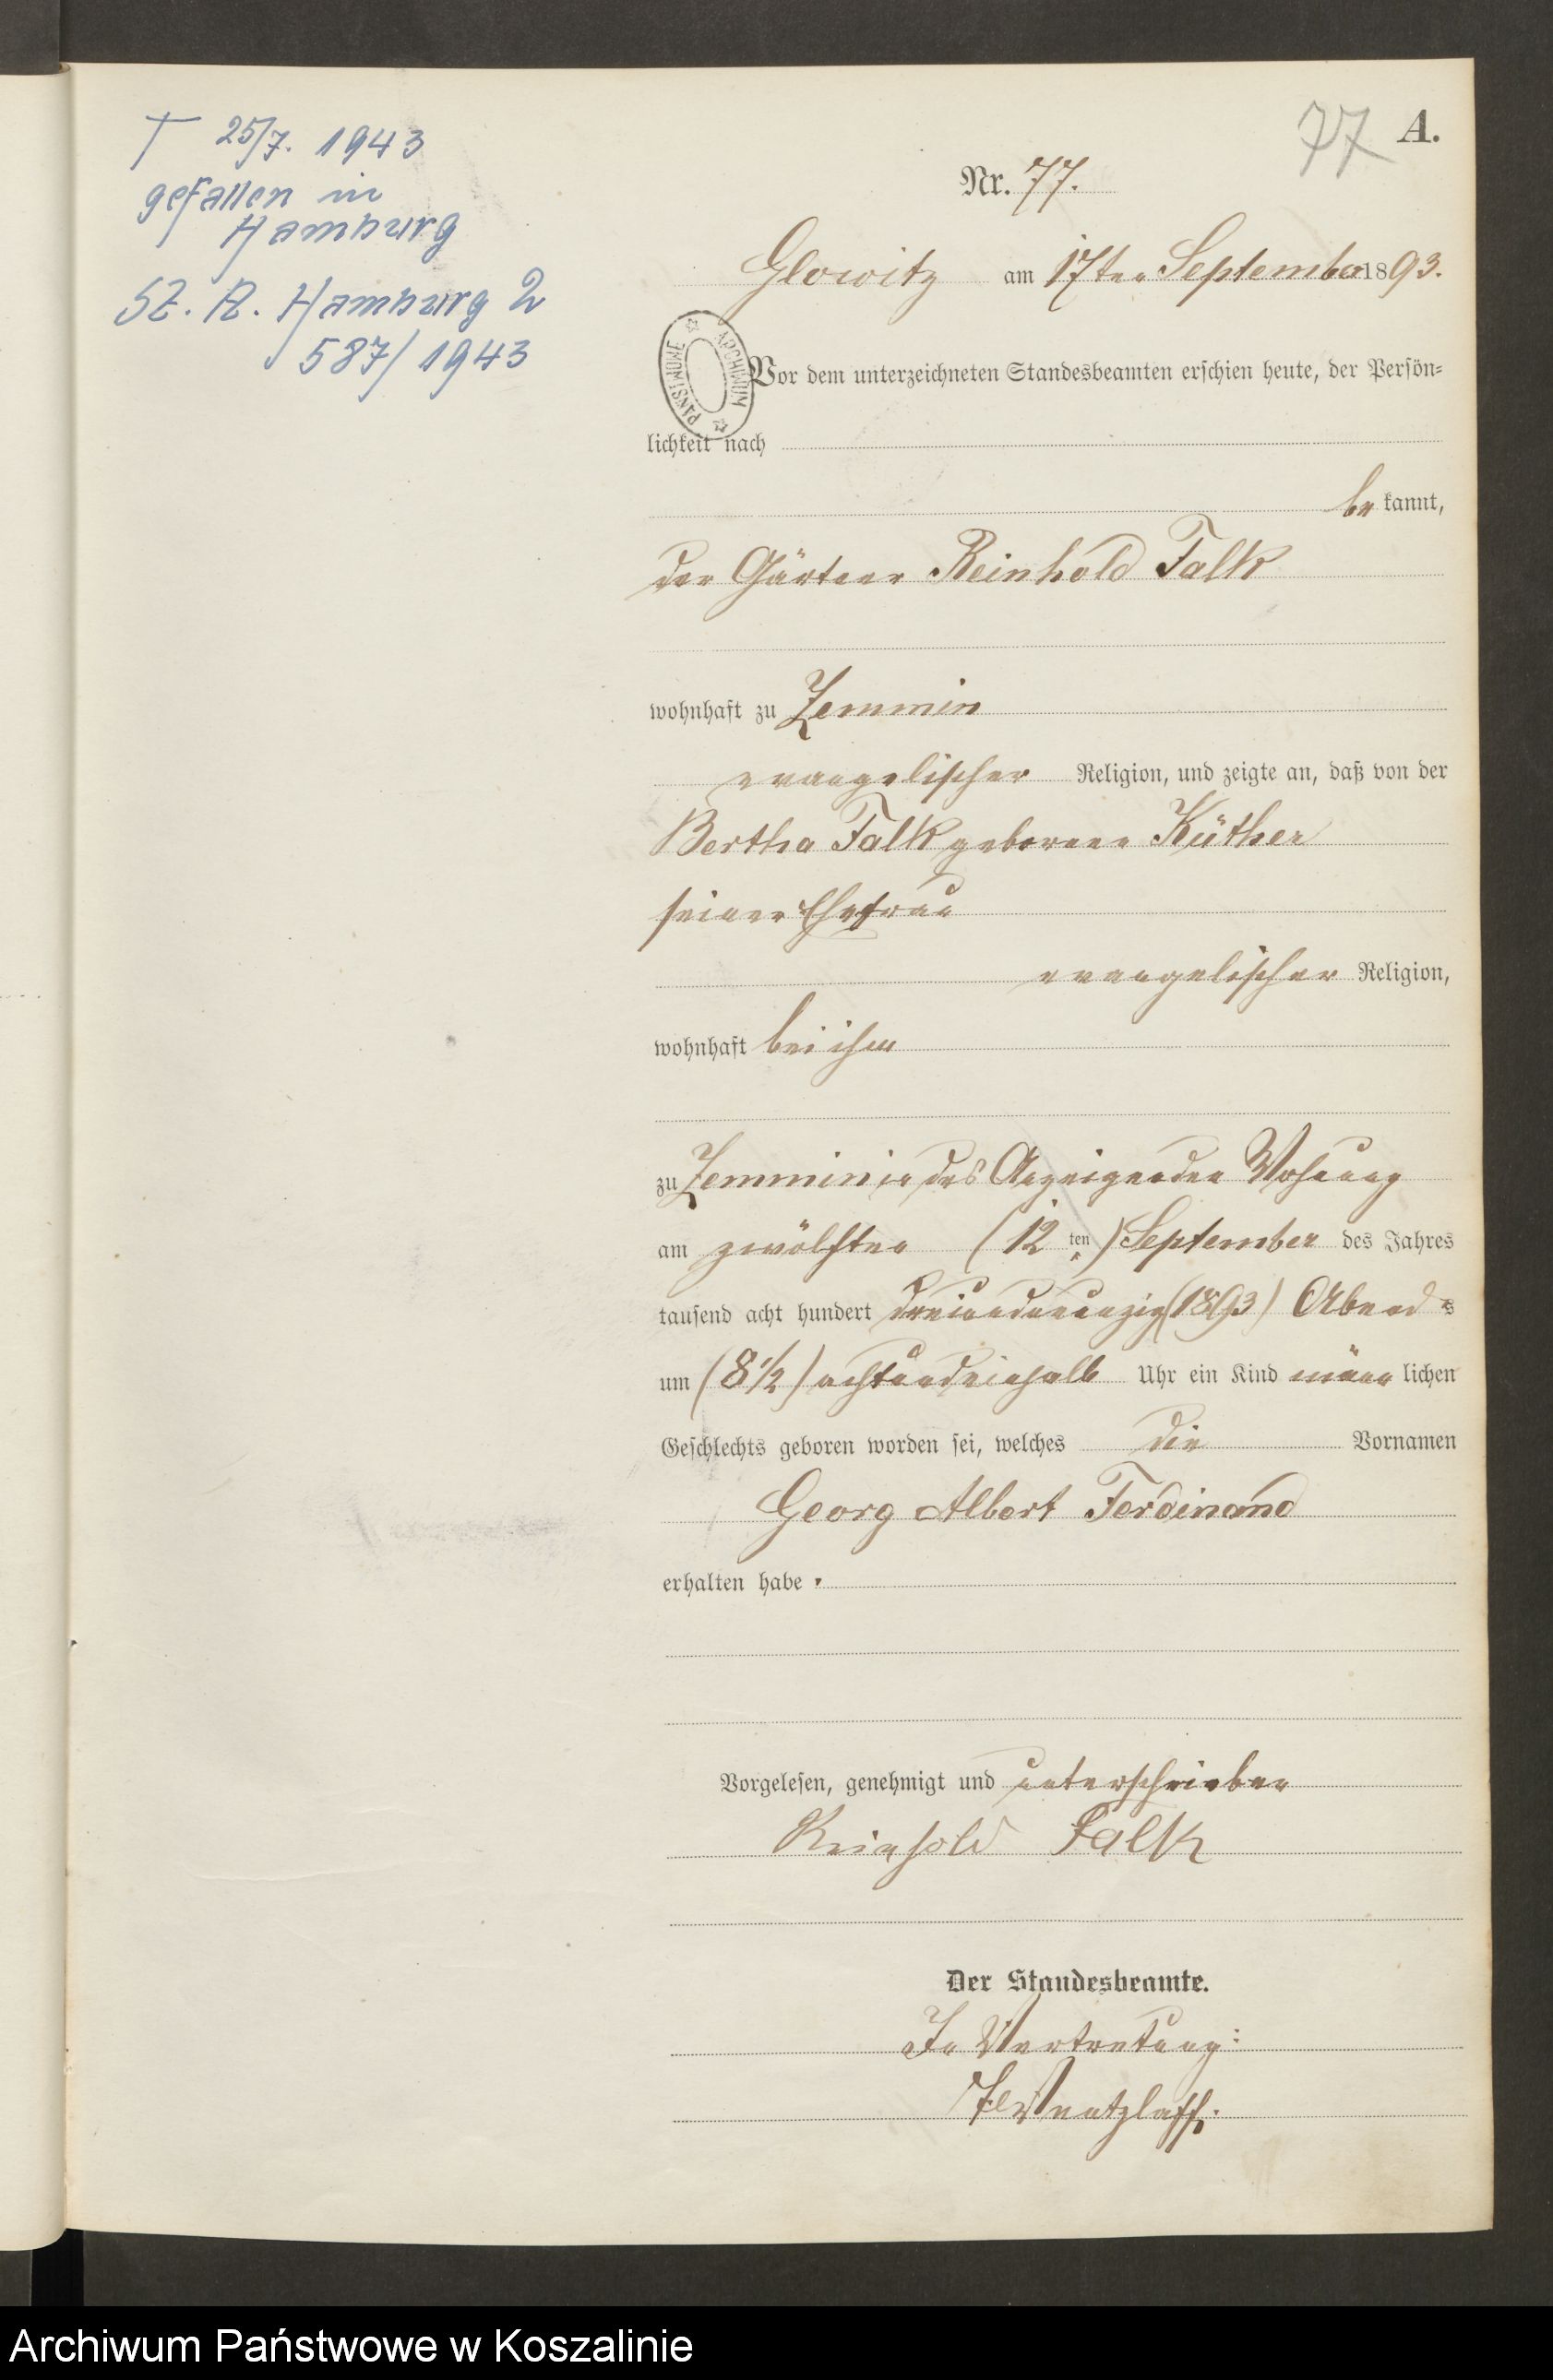 † 25/7. 1943
gefallen in
Hamburg
St. A. Hamburg 2
587/1943
77 A.
Nr. 77.
Glowitz am 17ten September 1893.
ARCHIWUM PAŃSTWOWE
Vor dem unterzeichneten Standesbeamten erschien heute, der Persön-
lichkeit nach
be kannt,
der Gärtner Reinhold Falk
wohnhaft zu Zemmin
evangelischer Religion, und zeigte an, daß von der
Bertha Falk geborene Küther
seiner Ehefrau
evangelischer Religion,
wohnhaft bei ihm
zu Zemmin in des Anzeigenden Wohnung
am zwölften (12 ten) September des Jahres
tausend acht hundert dreiundneunzig (1893) Abend s
um (8 1/2) achtundeinhalb Uhr ein Kind männ lichen
Geschlechts geboren worden sei, welches die Vornamen
Georg Albert Ferdinand
erhalten habe.
Vorgelesen, genehmigt und unterschrieben
Reinhold Falk
Der Standesbeamte.
In Vertretung:
Archiwum Państwowe w Koszalinie